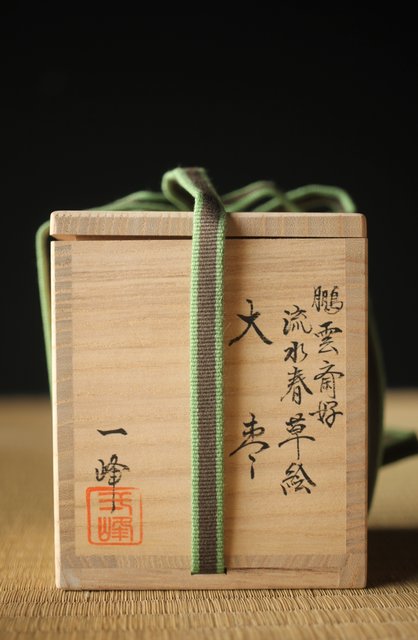 鵬雲斎好
流水春草絵
大棗
一峰
一峰